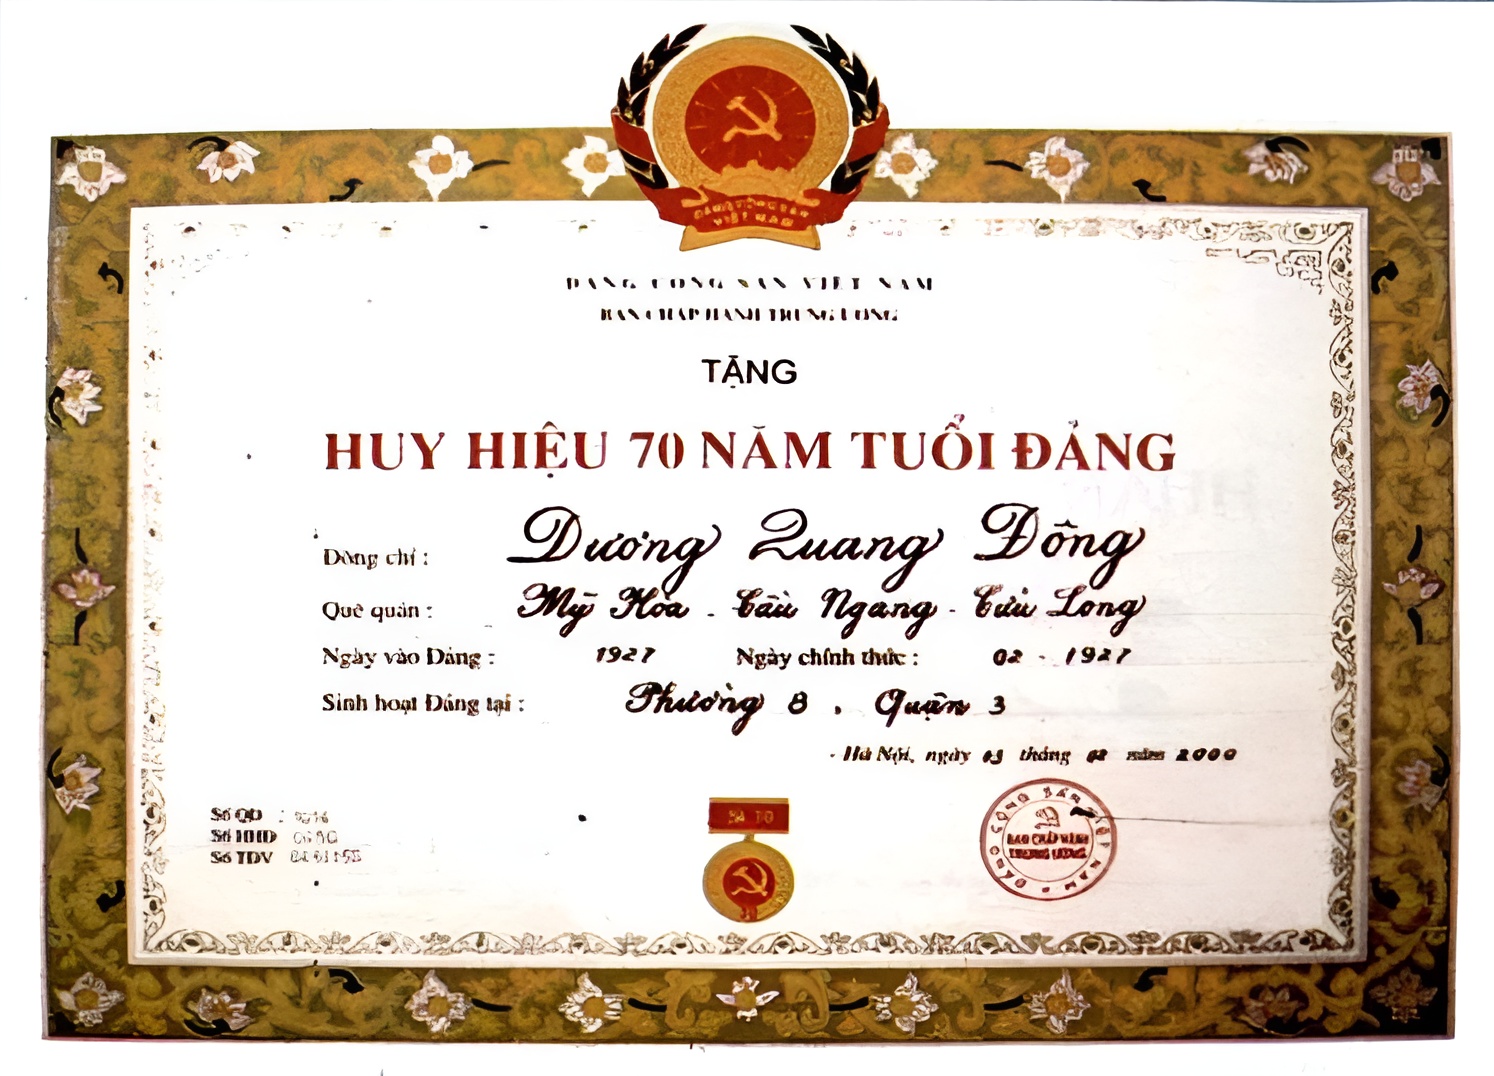 ĐẢNG CỘNG SẢN VIỆT NAM
ĐẢNG CỘNG SẢN VIỆT NAM
BAN CHẤP HÀNH TRUNG ƯƠNG
TẶNG
HUY HIỆU 70 NĂM TUỔI ĐẢNG
Đồng chí : Dương Quang Đông
Quê quán : Mỹ Hòa - Cầu Ngang - Cửu Long
Ngày vào Đảng : 1927 Ngày chính thức : 02 - 1927
Sinh hoạt Đảng tại : Phường 8 . Quận 3
Hà Nội, ngày 03 tháng 02 năm 2000
Số QĐ :
Số HHĐ
Số TĐV
ĐẢNG CỘNG SẢN VIỆT NAM
BAN CHẤP HÀNH
TRUNG ƯƠNG